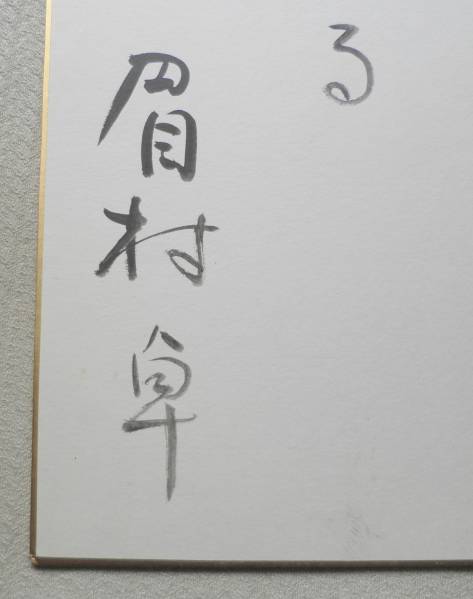 る
眉村卓